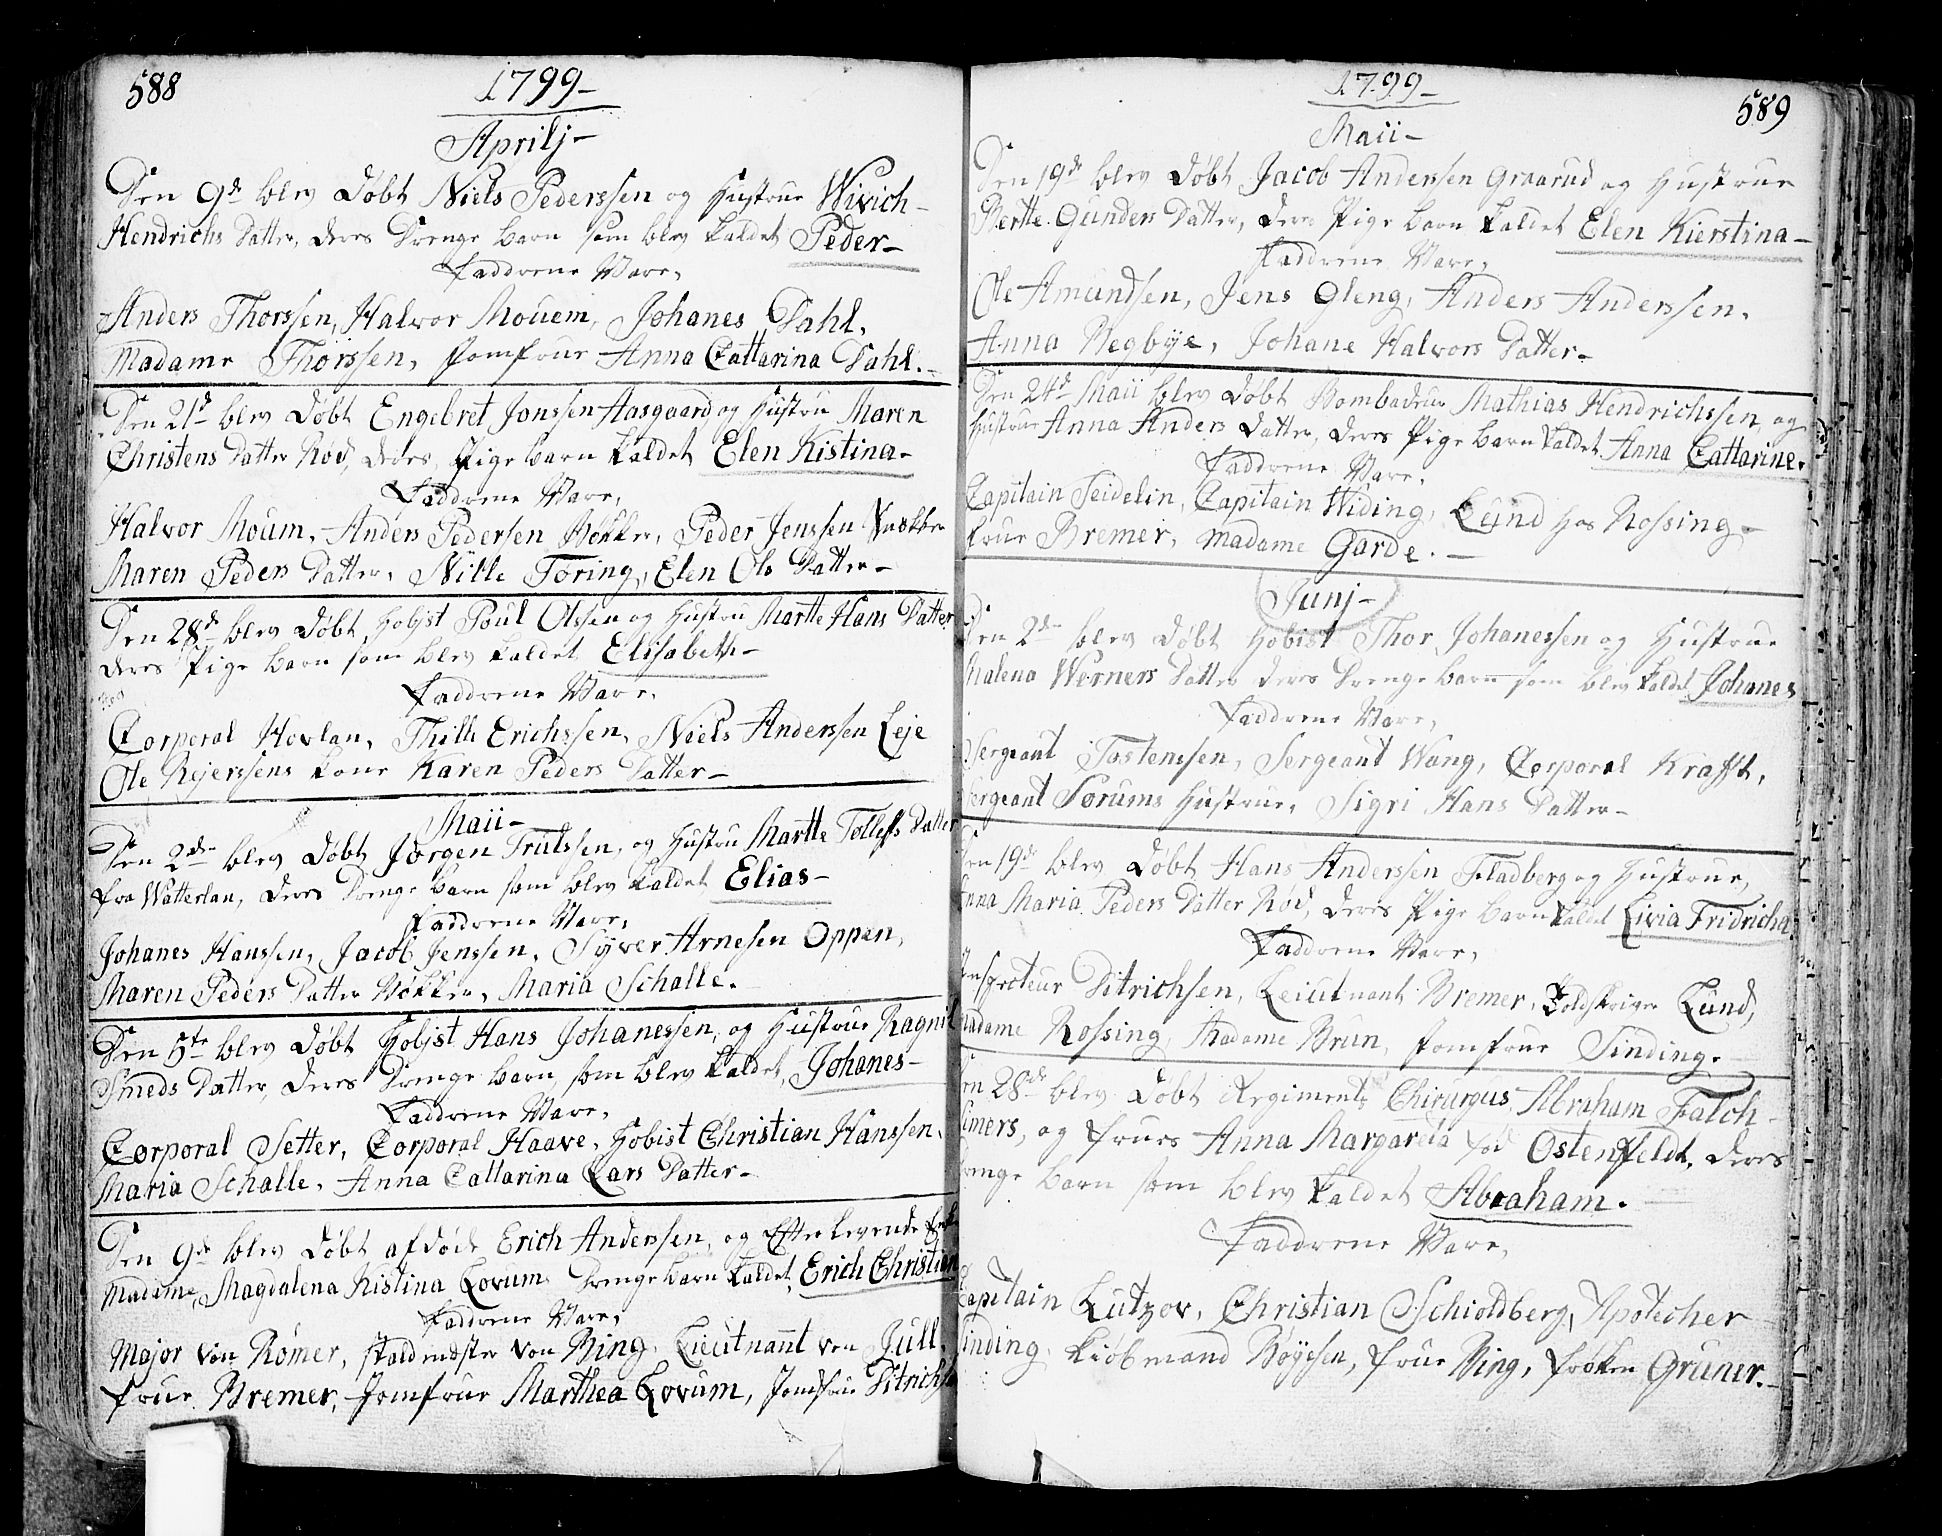 588
1799-
Aprilj-
Den 9de blev døbt Niels Pederssen og Hustrue Wivich-
Hendrichs Datter, deres Drenge barn som blev kaldet Peder-
Faddrene Vare,
Anders Thorssen, Halvor Mouem, Johanes Dahl,
Madame Thorssen, Jomfrue Anna Cattarina Dahl.-
Den 21de blev døbt Engebret Jonssen Aasgaard og Hustru Maren
Christens Datter Rød, deres Pige barn kaldet Elen Kistina-
Faddrene Vare,
Halvor Moum, Anders Pedersen Bøkker, Peder Jenssen
Maren Peders Datter, Nille Toring, Elen Ols Datter-
Den 28de blev døbt Hobist Poul Olssen og Hustru Marte Hans Datter
deres Pige barn som blev kaldet Elisabeth-
Faddrene Vare,
Corporal Hovlan, Thille Erichssen, Niels Anderssen Leje
Ole Rejerssens kone Karen Peders Datter-
Maii-
Den 2den blev døbt Jørgen Trulssen, og Hustru Martte Tollefs Datter
fra Watterlan, deres Drenge barn som blev kaldet Elias-
Faddrene Vare,
Johanes Hanssen, Jacob Jenssen, Syver Arnesen Oppen,
Maren Peders Datter Bøkker, Maria Schalle.
Den 5te blev døbt Hobist Hans Johanessen, og Hustrue Ragnil
Smeds Datter, deres Drenge barn, som blev kaldet, Johanes-
Faddrene Vare,
Corporal Setter, Corporal Haave, Hobist Christian Hanssen,
Maria Schalle, Anna Cattarina Lars Datter-
Den 9de blev døbt afdøde Erich Anderssen, og Efterlevende
Madame, Magdalena Kistina Lorum Drenge barn kaldet, Erich Christian
Faddrene Vare,
Major von Rømer, Staldmester von Bing, Lieutnant von Jull,
Frue Bremer, Jomfrue Marthea Lorum, Jomfrue
1799-
589
Maii-
Den 19de blev døbt Jacob Anderssen Graarud og Hustrue
Bertte Gunders Datter, deres Pige barn kaldet Elen Kierstina-
Faddrene Vare,
Ole Amundsen, Jens Gleng, Anders Anderssen,
Anna Regbye, Johane Halvors Datter-
Den 24de Maii blev døbt Bombadeur Mathias Hendrichssen, og
Hustrue Anna Anders Datter, deres Pige barn kaldet Anna Cattarine.
Faddrene Vare,
Capitain Seidelin, Capitain Widing, Lund hos Rossing-
Frue Bremer, Madame Garde.-
Junj-
Den 2den blev døbt Hobist Thor Johanessen og Hustrue
Malena Werners Datter deres Drenge barn som blev kaldet Johanes
Faddrene Vare,
Sergeant Tostensen, Sergeant Wang, Corporal Krafft,
Sergeant Sorums Hustrue, Sigri Hans Datter-
Den 19de blev døbt Hans Anderssen Fladberg og Hustrue,
Anna Maria Peders Datter Rød, deres Pige barn kaldet Livia Fridricha
Faddrene Vare,
Inspecteur Ditrichsen, Leiutnant Bremer, Toldskriver Lund,
Madame Rossing, Madame Brun, Jomfrue Sinding.
Den 28de blev døbt Regiments Chirurgus Abraham Falch-
Simers, og Frues Anna Margareta fød Ostenfeldt, deres
Drenge barn som blev kaldet Abraham.
Faddrene Vare,
Capitain Lutzov, Christian Schioldberg, Apotecher
Sinding, kiøbmand Bøyesen, Frue Bing, Frøken Gruner.-